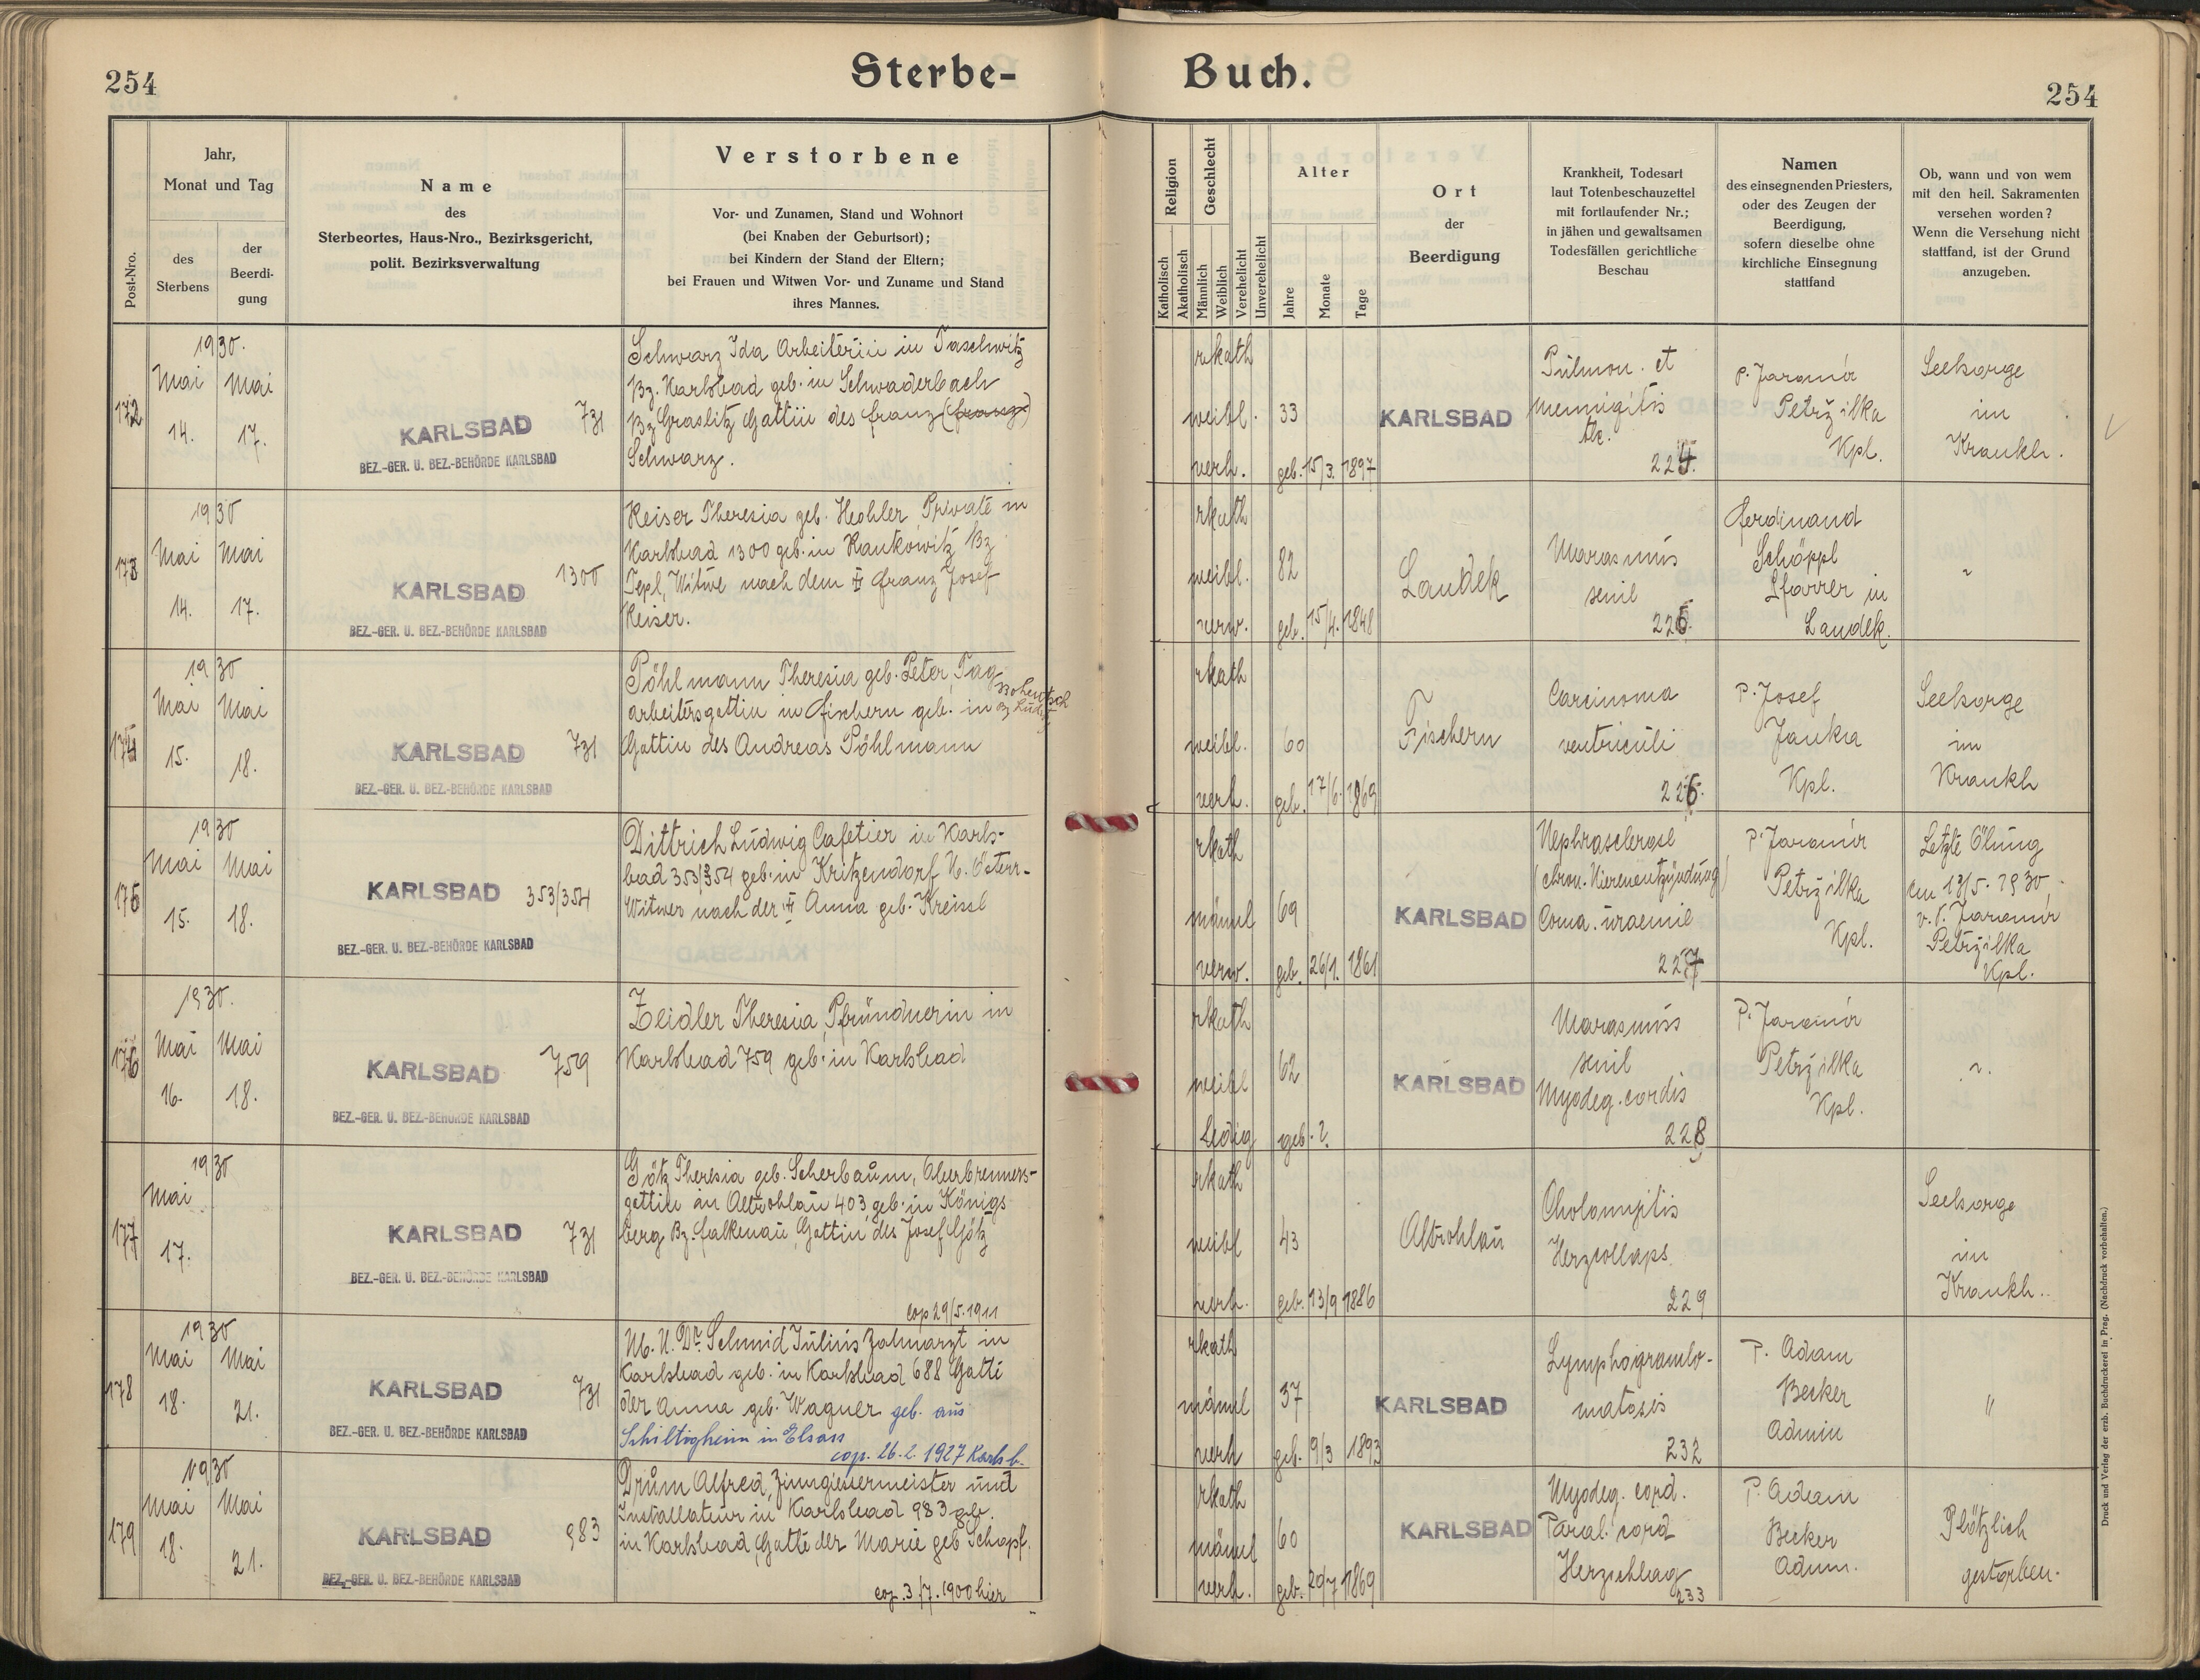 254
Sterbe-
Buch.
254
Post-Nro.
Jahr,
Monat und Tag
des
Sterbens
der
Beerdi-
gung
Name
des
Sterbeortes, Haus-Nro., Bezirksgericht,
polit. Bezirksverwaltung
Verstorbene
Vor- und Zunamen, Stand und Wohnort
(bei Knaben der Geburtsort);
bei Kindern der Stand der Eltern;
bei Frauen und Witwen Vor- und Zuname und Stand
ihres Mannes.
Religion
Katholisch
Akatholisch
Geschlecht
Männlich
Weiblich
Verehelicht
Unverehelicht
Alter
Jahre
Monate
Tage
Ort
der
Beerdigung
Krankheit, Todesart
laut Totenbeschauzettel
mit fortlaufender Nr.;
in jähen und gewaltsamen
Todesfällen gerichtliche
Beschau
Namen
des einsegnenden Priesters,
oder des Zeugen der
Beerdigung,
sofern dieselbe ohne
kirchliche Einsegnung
stattfand
Ob, wann und von wem
mit den heil. Sakramenten
versehen worden?
Wenn die Versehung nicht
stattfand, ist der Grund
anzugeben.
172
1930.
Mai Mai
14. 17.
KARLSBAD 731
BEZ.-GER. U. BEZ.-BEHÖRDE KARLSBAD
Schwarz Ida Arbeiterin in Taschwitz
Bz. Karlsbad geb. in Schwaderbach
Bz Graslitz Gattin des Franz (Franz)
Schwarz.
rkath
weibl. 33
verh. geb. 15/3. 1897
KARLSBAD
Pulmon. et
mennigitis
tbc.
224.
P. Jaromír
Petržilka
Kpl.
Seelsorge
im
Krankh.
173
1930
Mai Mai
14. 17.
KARLSBAD 1300
BEZ.-GER. U. BEZ.-BEHÖRDE KARLSBAD
Keiser Theresia geb. Hechler, Private in
Karlsbad 1300 geb. in Rankowitz Bz
Tepl, Witwe nach dem Franz Josef
Keiser.
rkath
weibl. 82
verw. geb. 15/4. 1848
Landek
Marasmus
senil
225.
Ferdinand
Schöppl
Pfarrer in
Landek.
174
1930
Mai Mai
15. 18.
KARLSBAD 731
BEZ.-GER. U. BEZ.-BEHÖRDE KARLSBAD
Pöhlmann Theresia geb. Peter, Tag
arbeitersgattin in Fischern geb. in
Gattin des Andreas Pöhlmann
rkath
weibl. 60
verh. geb. 17/6. 1869
Fischern
Carcinoma
ventriculi
226.
P. Josef
Janka
Kpl.
Seelsorge
im
Krankh
175
1930
Mai Mai
15. 18.
KARLSBAD 353/354
BEZ.-GER. U. BEZ.-BEHÖRDE KARLSBAD
Dittrich Ludwig Cafetier in Karls-
bad 353/354 geb. in Kritzendorf N. Österr.
Witwer nach der Anna geb. Kreissl
rkath
männl 69
verw. geb. 26/1. 1861
KARLSBAD
Nephrasclerose
(chron. Nierenentzündung)
Coma. uraemie
227
P. Jaromír
Petržilka
Kpl.
Letzte Ölung
am 13/5. 1930
v. P. Jaromír
Petržilka
Kpl.
176
1930.
Mai Mai
16. 18.
KARLSBAD 759
BEZ.-GER. U. BEZ.-BEHÖRDE KARLSBAD
Zeidler Theresia, Pfründnerin in
Karlsbad 759 geb. in Karlsbad
rkath
weibl 62
ledig geb. ?.
KARLSBAD
Marasmus
senil
Myodeg. cordis
228
P. Jaromír
Petržilka
Kpl.
177
1930
Mai
17.
KARLSBAD 731
BEZ.-GER. U. BEZ.-BEHÖRDE KARLSBAD
Götz Theresia geb. Scherbaum, Oberbrenners-
gattin in Altrohlau 403 geb. in Königs
berg Bz. Falkenau, Gattin des Josef Götz
cop 29/5. 1911
rkath
weibl 43
verh. geb. 13/9 1886
Altrohlau
Herzcollaps.
229
Seelsorge
in
Krankh.
178
1930
Mai Mai
18. 21.
KARLSBAD 731
BEZ.-GER. U. BEZ.-BEHÖRDE KARLSBAD
M. U. Dr. Schmid Julius Zahnarzt in
Karlsbad geb. in Karlsbad 688 Gatte
der Anna geb. Wagner geb. aus
Schiltigheim in Elsass
cop. 26.2. 1927 Karlsb.
rkath
männl 37
verh geb. 9/3 1893
KARLSBAD
Lymphogranulo-
matosis
232
P. Adam
Becker
Admin
"
179
1930
Mai Mai
18. 21.
KARLSBAD 983
BEZ.-GER. U. BEZ.-BEHÖRDE KARLSBAD
Drum Alfred, Zinngiesermeister und
Installateur in Karlsbad 983 geb.
in Karlsbad, Gatte der Marie geb Schopf.
cop. 3/7. 1900 hier
rkath
männl 60
verh. geb. 20/7 1869
KARLSBAD
Myodeg. cord.
Paral. cord
Herzschlag
233
P. Adam
Becker
Adm.
Plötzlich
gestorben.
Druck und Verlag der erzb. Buchdruckerei in Prag. (Nachdruck vorbehalten.)